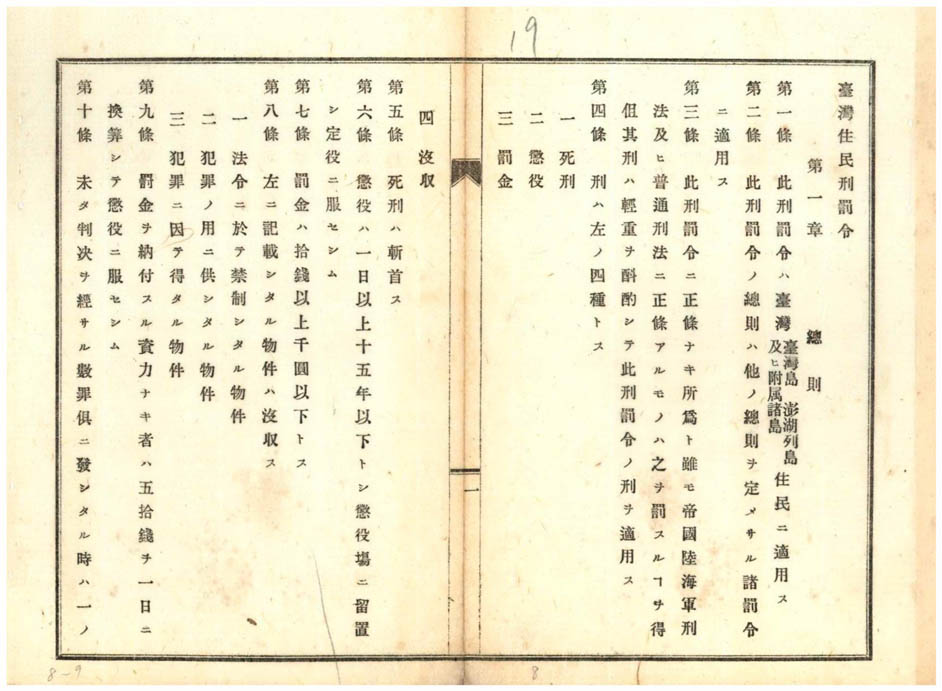 19
臺灣住民刑罰令
第一章 總則
第一條 此刑罰令ハ臺灣 臺灣島 澎湖列島 及ヒ附属諸島 住民ニ適用ス
第二條 此刑罰令ノ總則ハ他ノ總則ヲ定メサル諸罰令
ニ適用ス
第三條 此刑罰令ニ正條ナキ所爲ト雖モ帝國陸海軍刑
法及ヒ普通刑法ニ正條アルモノハ之ヲ罰スルヿヲ得
但其刑ハ輕重ヲ斟酌シテ此刑罰令ノ刑ヲ適用ス
第四條 刑ハ左ノ四種トス
一 死刑
二 懲役
三 罰金
一
四 沒収
第五條 死刑ハ斬首ス
第六條 懲役ハ一日以上十五年以下トシ懲役塲ニ留置
シ定役ニ服セシム
第七條 罰金ハ拾錢以上千圓以下トス
第八條 左ニ記載シタル物件ハ沒収ス
一 法令ニ於テ禁制シタル物件
二 犯罪ノ用ニ供シタル物件
三 犯罪ニ因テ得タル物件
第九條 罰金ヲ納付スル資力ナキ者ハ五拾錢ヲ一日ニ
換算シテ懲役ニ服セシム
第十條 未タ判决ヲ經サル數罪俱ニ發シタル時ハ一ノ
8-9
8